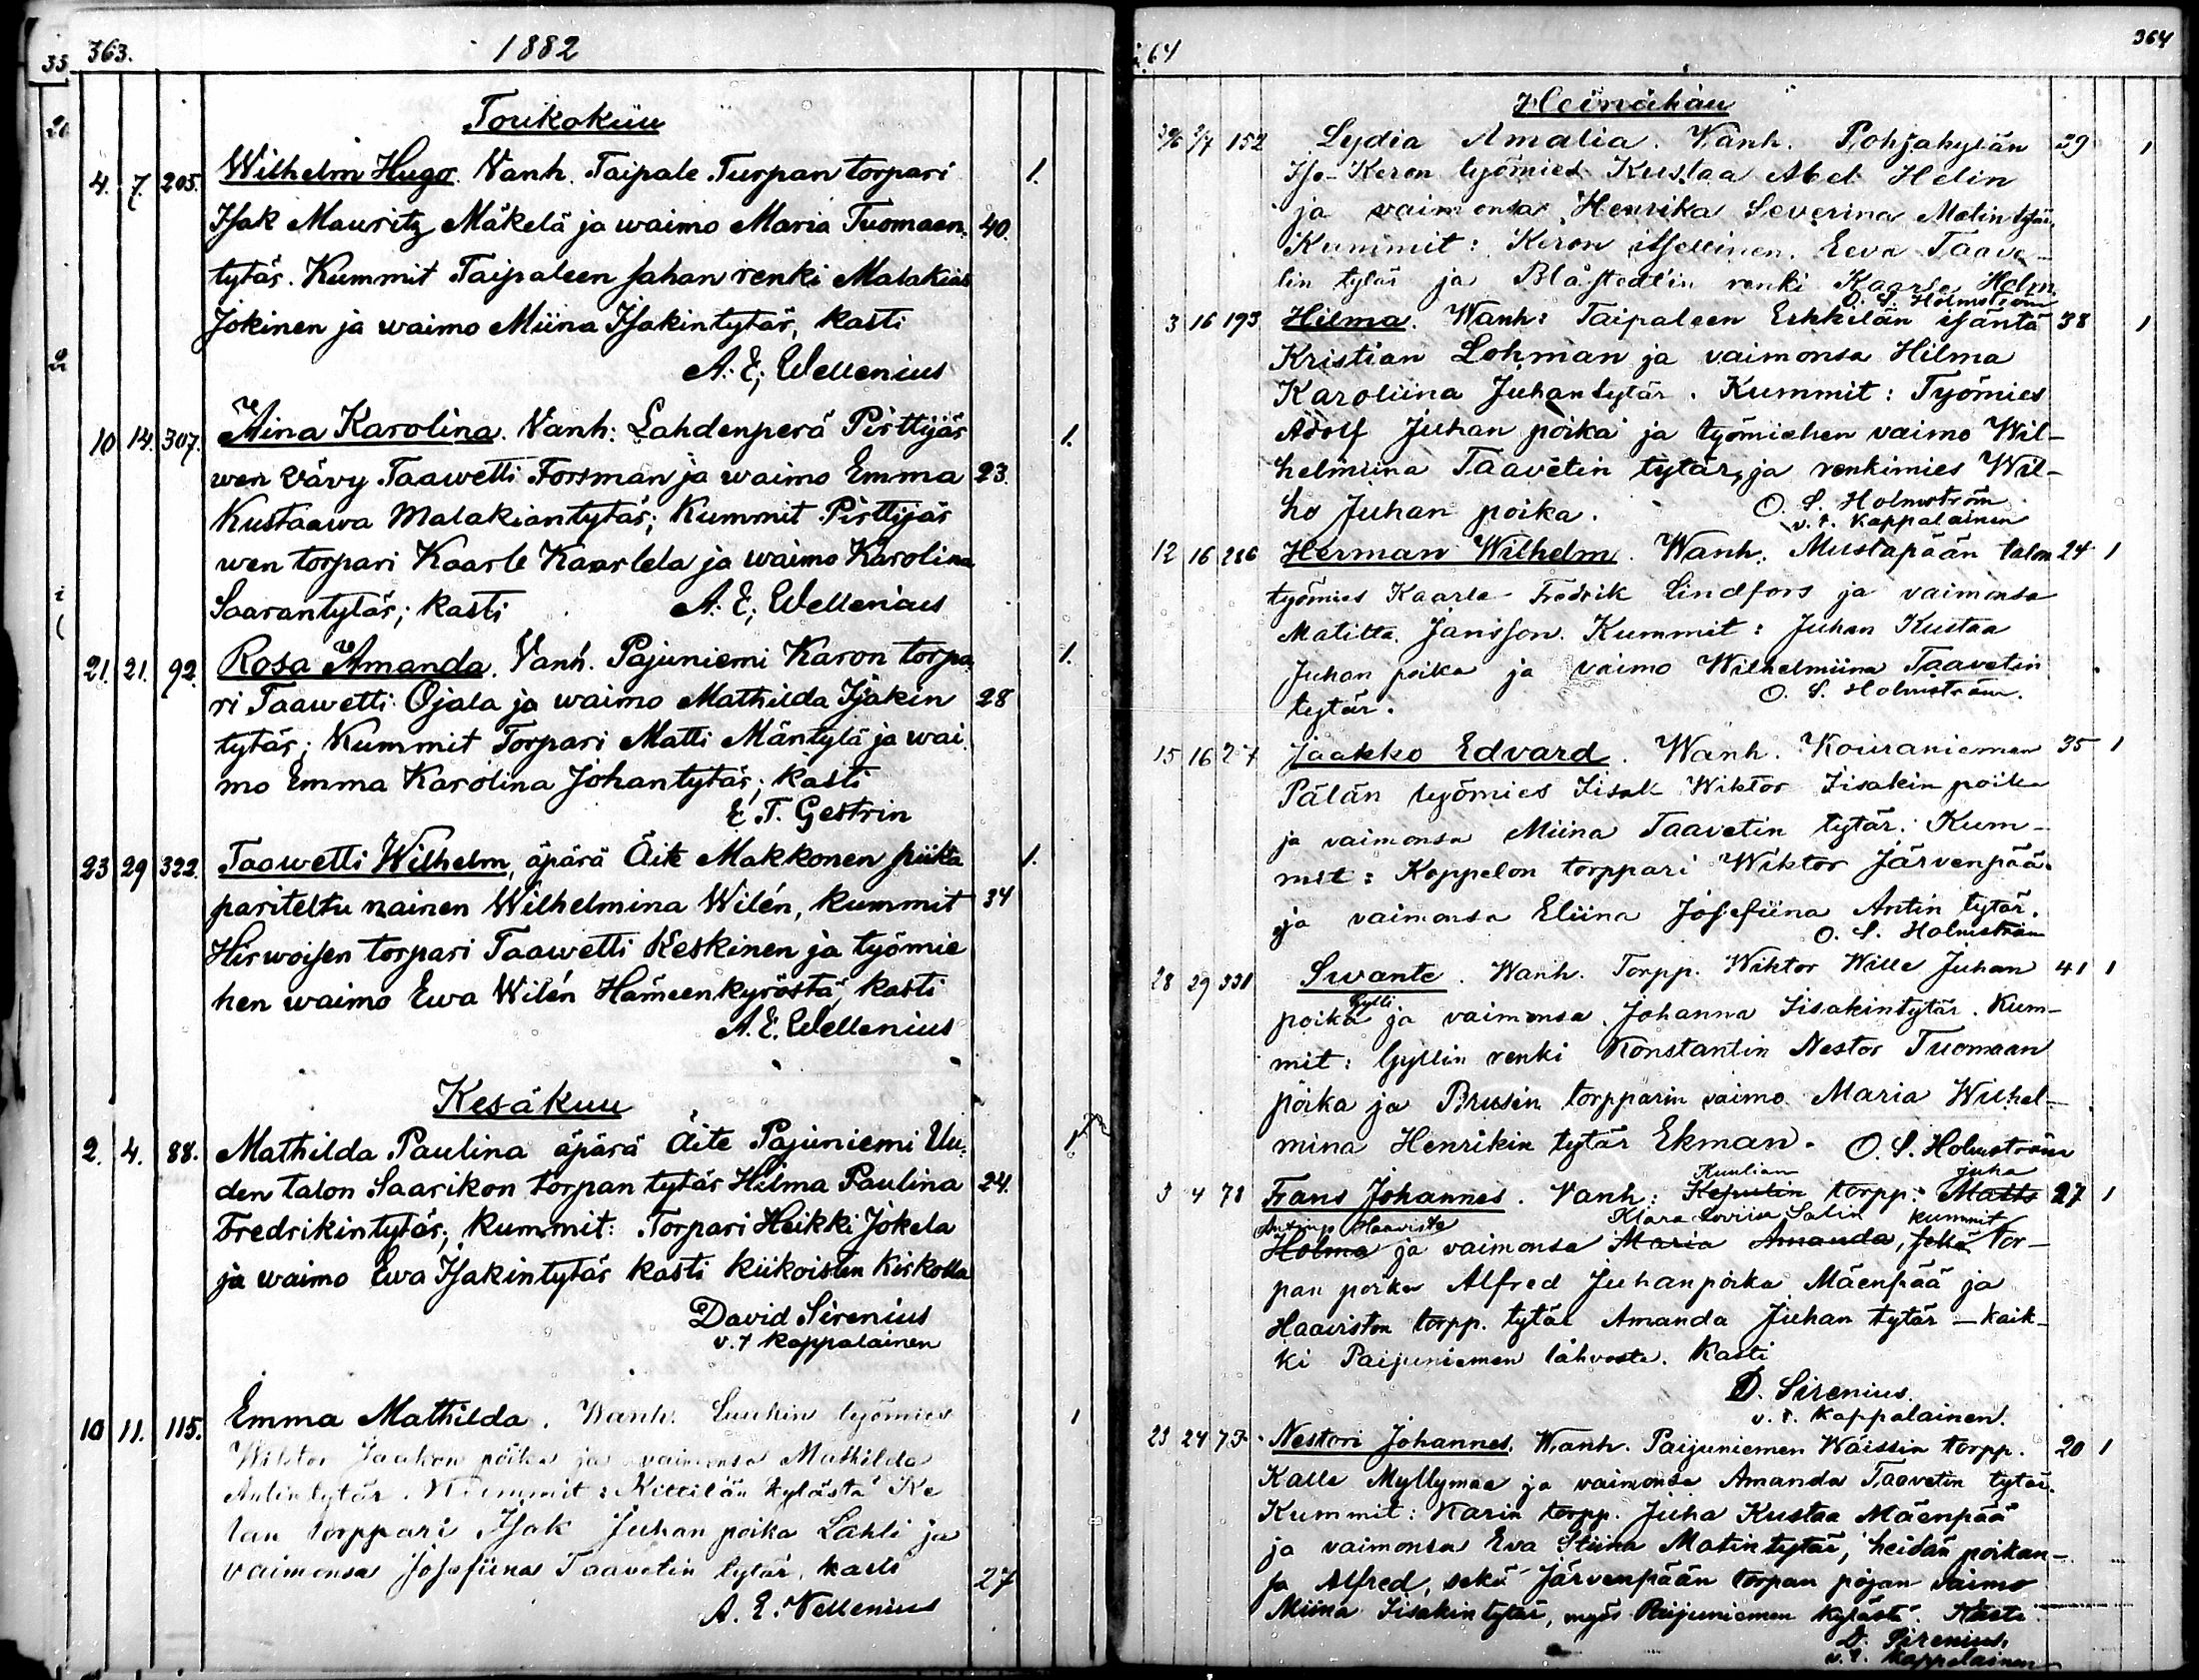 363. 1882
Toukokuu
4. 7. 205. Wilhelm Hugo. Vanh. Taipale Turpan torpari 1.
Isak Mauritz Mäkelä ja waimo Maria Tuomaan 40.
tytär. Kummit Taipaleen sahan renki Malakias
Jokinen ja waimo Miina Isakintytär, kasti
A. E. Wellenius
10 14. 307. Aina Karolina. Vanh: Lahdenperä Pirttijär 1.
wen vävy Taawetti Forsman ja waimo Emma 23.
Kustaawa Malakiantytär; Kummit Pirttijär
wen torpari Kaarle Kaarlela ja waimo Karolina
Saarantytär; kasti A. E; Wellenius
21. 21. 92. Rosa Amanda. Vanh. Pajuniemi Karon torpa 1.
ri Taawetti Ojala ja waimo Mathilda Isakin 28
tytär; Kummit Torpari Matti Mäntylä ja wai
mo Emma Karolina Johantytär; kasti
E. T. Gestrin
23 29 322. Taawetti Wilhelm, äpärä Äite Makkonen piika 1.
pariteltu nainen Wilhelmina Wilén, kummit 34
Hirwoisen torpari Taawetti Keskinen ja työmie
hen waimo Ewa Wilén Hämeenkyröstä, kasti
A. E. Wellenius
Kesäkuu
2. 4. 88. Mathilda Paulina äpärä Äite Pajuniemi Uu- 1.
den talon Saarikon torpan tytär Hilma Paulina 24.
Fredrikintytär; kummit: Torpari Heikki Jokela
ja waimo Ewa Isakintytär kasti kiikoisten kirkolla
David Sirenius
v. t kappalainen
10 11. 115. Emma Mathilda. Wanh. Luukin työmies 1
Wiktor Jaakon poika ja vaimonsa Mathilda
Antin tytär. Kummit: Kittilän kylästä Ke
lan torppari Isak Juhan poika Lahti ja
vaimonsa Josefiina Taavetin tytär, kasti 27
A. E. Wellenius
64 364
Heinäkuu
30/6 2/7 152 Lydia Amalia. Wanh. Pohjakylän 29 1
Iso-Keron työmies Kustaa Abel Helin
ja vaimonsa Henrika Severina Matin tytär.
Kummit: Keron itsellinen Eeva Taave-
tin tytär ja Blåfjedlin renki Kaarle Holm
O. S. Holmström
3 16 193 Hilma. Wanh: Taipaleen Erkkilän isäntä 38 1
Kristian Lohman ja vaimonsa Hilma
Karoliina Juhan tytär. Kummit: Työmies
Adolf Juhan poika ja työmiehen vaimo Wil-
helmiina Taavetin tytär, ja renkimies Wil-
ho Juhan poika. O. S. Holmström
v. t. kappalainen
12 16 286 Herman Wilhelm. Wanh. Mustapään talon 24 1
työmies Kaarle Fredrik Lindfors ja vaimonsa
Matilta Jansson. Kummit: Juhan Kustaa
Juhan poika ja vaimo Wilhelmiina Taavetin
tytär. O. S. Holmström.
15 16 Jaakko Edvard. Wanh. Kouraniemen 35 1
Pälän työmies Iisak Wiktor Iisakin poika
ja vaimonsa Miina Taavetin tytär. Kum-
mit: Koppelon torppari Wiktor Järvenpää
ja vaimonsa Eliina Josefiina Antin tytär.
O. S. Holmström
28 29 331 Swante. Wanh. Torpp. Wiktor Wille Juhan 41 1
poika Gylli ja vaimonsa Johanna Iisakintytär. Kum-
mit: Gyllin renki Konstantin Nestor Tuomaan
poika ja Brusin torpparin vaimo Maria Wilhel-
mina Henrikin tytär Ekman. O. S. Holmström
3 4 78 Frans Johannes. Vanh: Kepulin Kuulian torpp: Matts Juha 27 1
Holma Anttinp. Haavisto ja vaimonsa Maria Amanda, Klara Loviisa Salin kummit Tor-
pan poika Alfred Juhanpoika Mäenpää ja
Haaviston torpp. tytär Amanda Juhan tytär – kaik-
ki Paijuniemen lähvosta. Kasti
D. Sirenius.
v. t. kappalainen.
23 24 75 Nestori Johannes. Wanh. Paijuniemen Wäissin torpp. 20 1
Kalle Myllymaa ja vaimonsa Amanda Taavetin tytär.
Kummit: Karin torpp. Juha Kustaa Mäenpää
ja vaimonsa Eva Stiina Matin tytär, heidän poikan-
sa Alfred, sekä Järvenpään torpan pojan vaimo
Miina Iisakin tytär, myös Paijuniemen kylästä. Kasti
D. Sirenius,
v. t. kappalainen